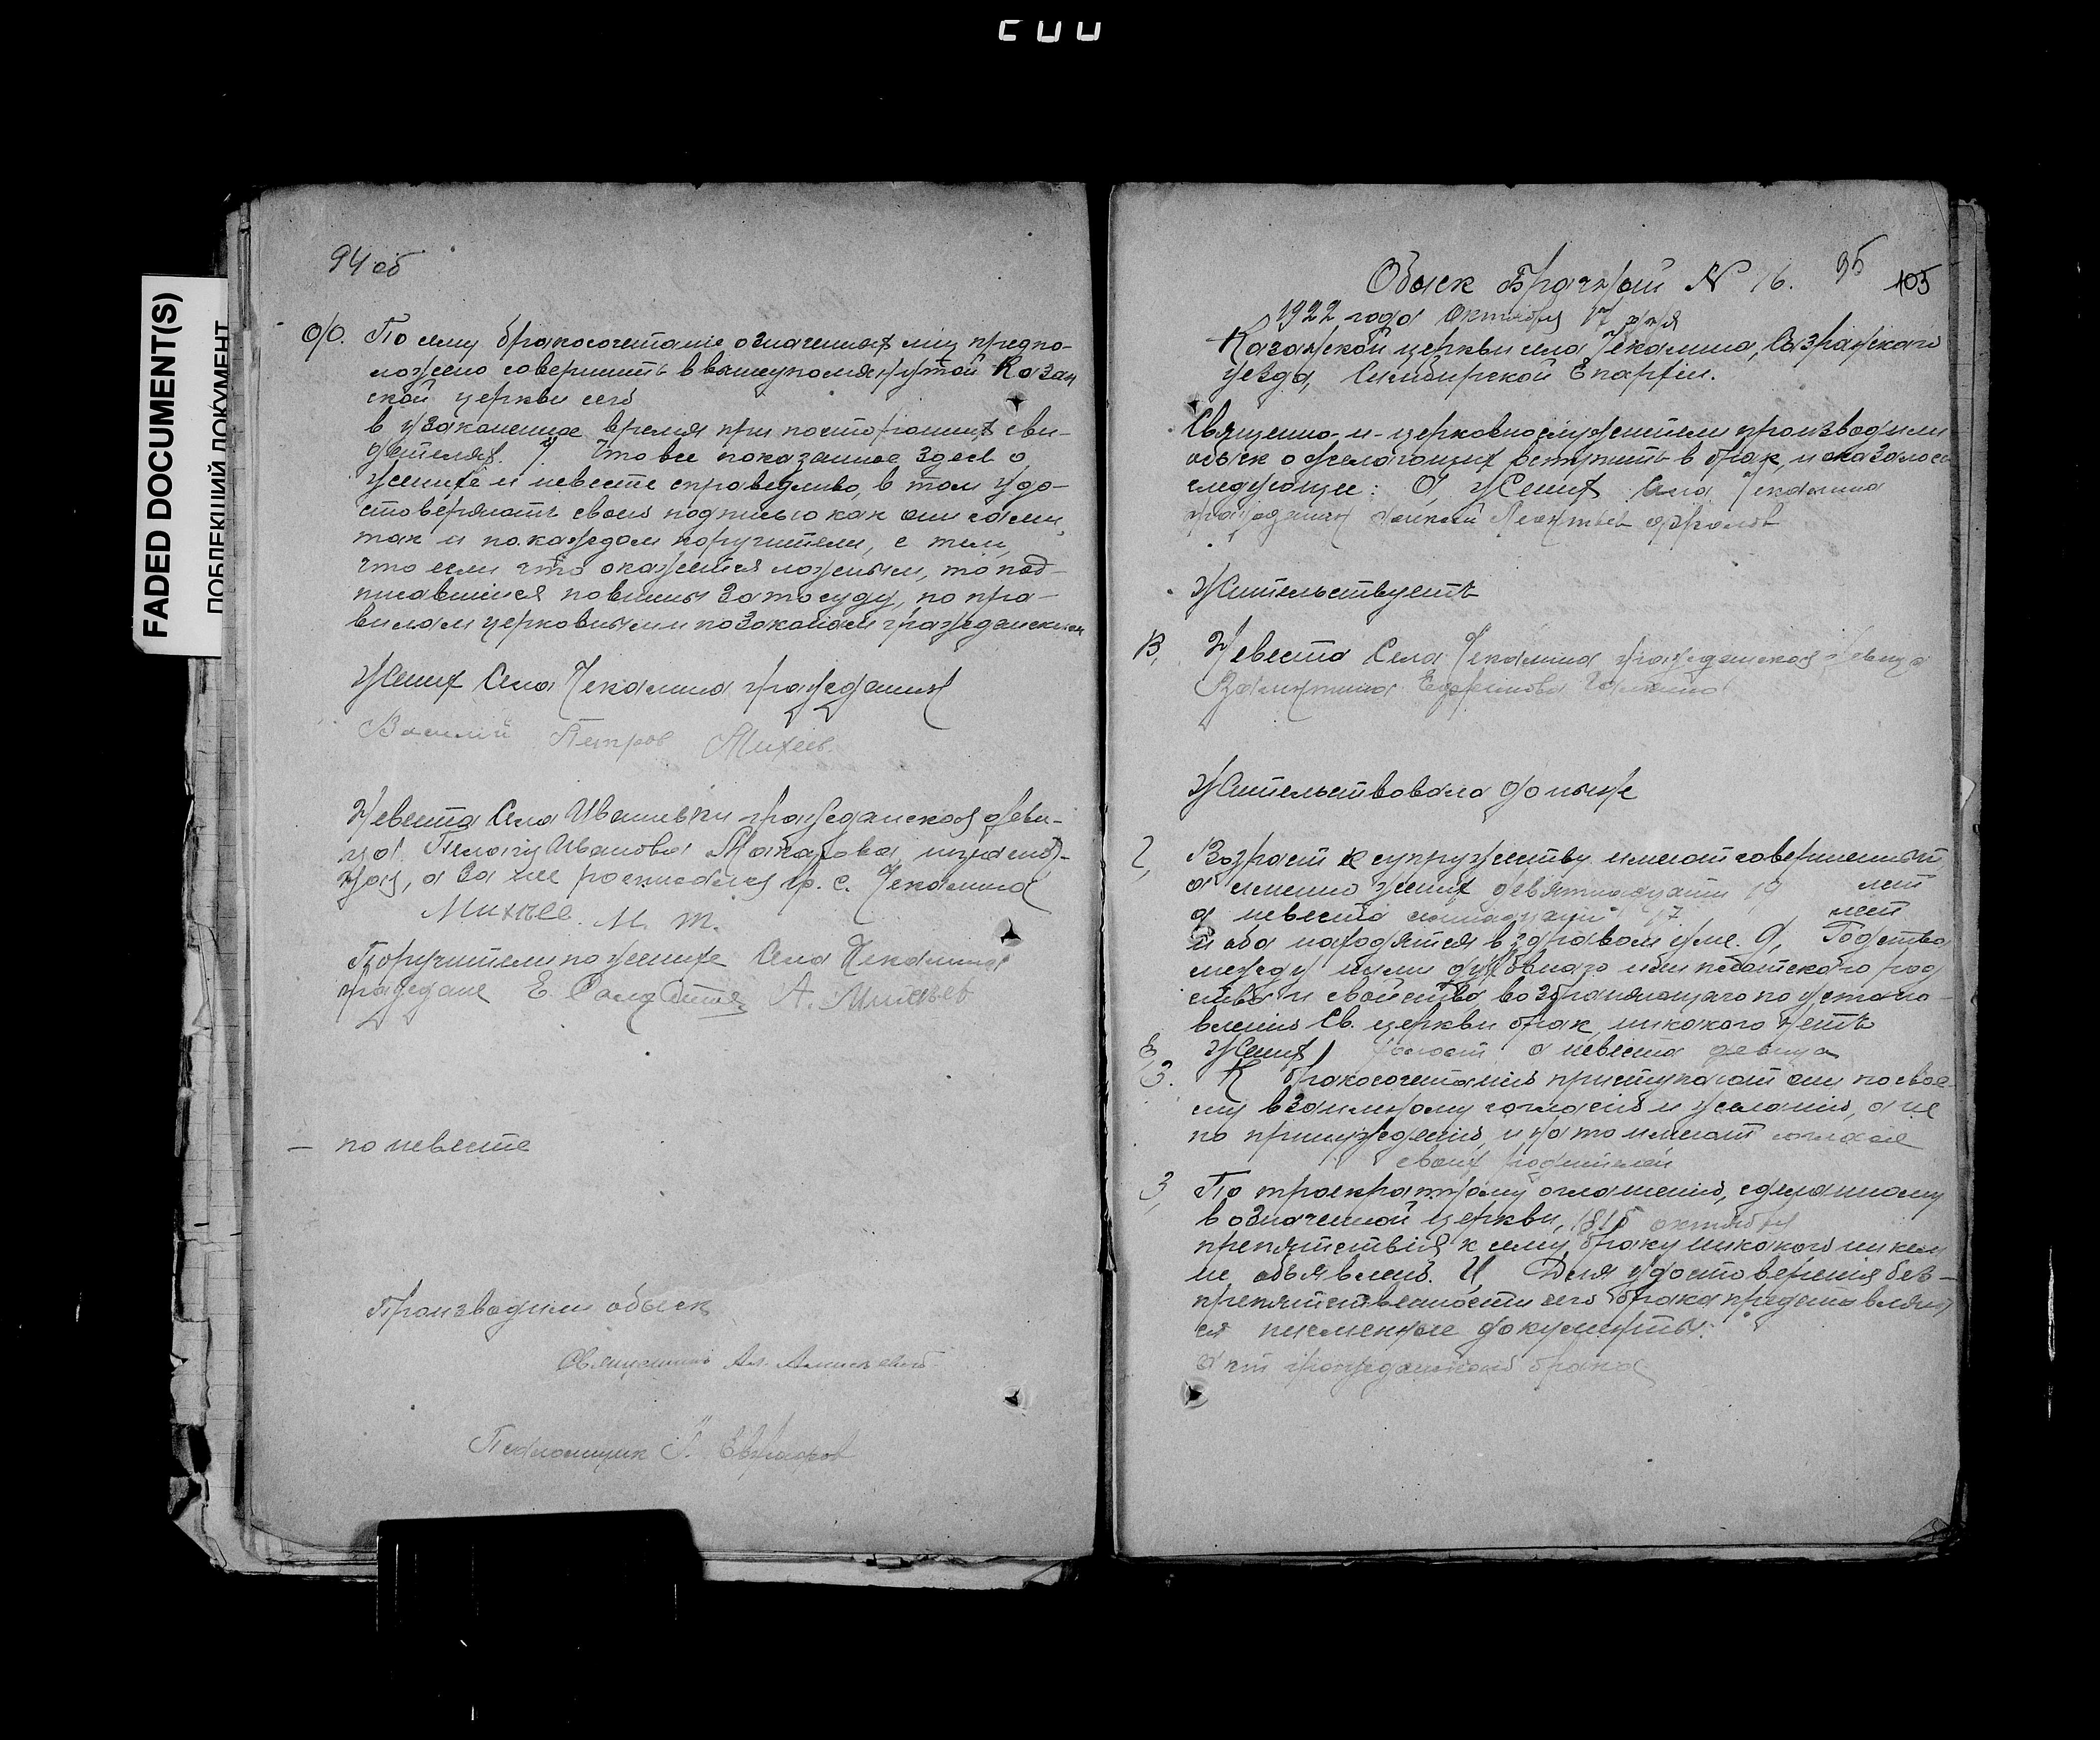 FADED DOCUMENT(S)
ПОБЛЕКШИЙ ДОКУМЕНТ
94 об
По сему бракосочетание означенных лиц предпо-
ложено совершить в вышеупомянутой Казан
ской церкви сего
в узаконенное время при посторонних сви-
детелях. 7. Что все показанное здесь о
женихе и невесте справедливо, в том удо-
стоверяють своею подписью как они сами,
так и по каждом поручители, с тем,
что если что окажется ложным, то под-
писавшиеся повинны за то суду, по пра-
вилам церковным и по законам гражданским
Жених Села Чекалина гражданин
Василий Петров Михеев.
Невеста Села Ивашевки гражданская деви-
ца Пелагия Иванова Макарова, неграмот-
ная, а за нее росписался гр. с. Чекалина
Михеев. М. Т.
Поручители по женихе Села Чекалина
граждане Е. А.
— по невесте
Производили обыск
Священник Ал.
Псаломщик Евграфов
Обыск Брачный № 16.
95
105
1922 года Октября 17 дня
Казанской церкви села Чекалина, Сызранского
уезда, Симбирской Епархии.
Священно-и-церковнослужители производили
обыск о желающих вступить в брак, и оказалось
следующее: Жених Села Чекалина
гражданин Леонтьев
Жительствует
В, Невеста Села Чекалина гражданская девица
Валентина
Жительствовала до ныне
2, Возраст к супружеству имеют совершенный,
а именно жених девятнадцати 19 лет
а невеста семнадцати 17 лет
и оба находятся в здравом уме. Д, Родства
между ними духовнаго или плотского род
ства и свойства, возбраняющаго по устано-
влению Св. церкви брак, никакого нетъ
Жених холост а невеста девица
К бракосочетанию приступают они по свое-
му взаимному согласию и желанию, а не
по принуждению, и на то имеют согласие
своих родителей
З, По троекратному оглашению, сделанному
в означенной церкви, октября
препятствия к сему браку никакого никем
не объявлено. И, Для удостоверения без-
препятственности сего брака представляют
ся письменные документы:
акт гражданского брака